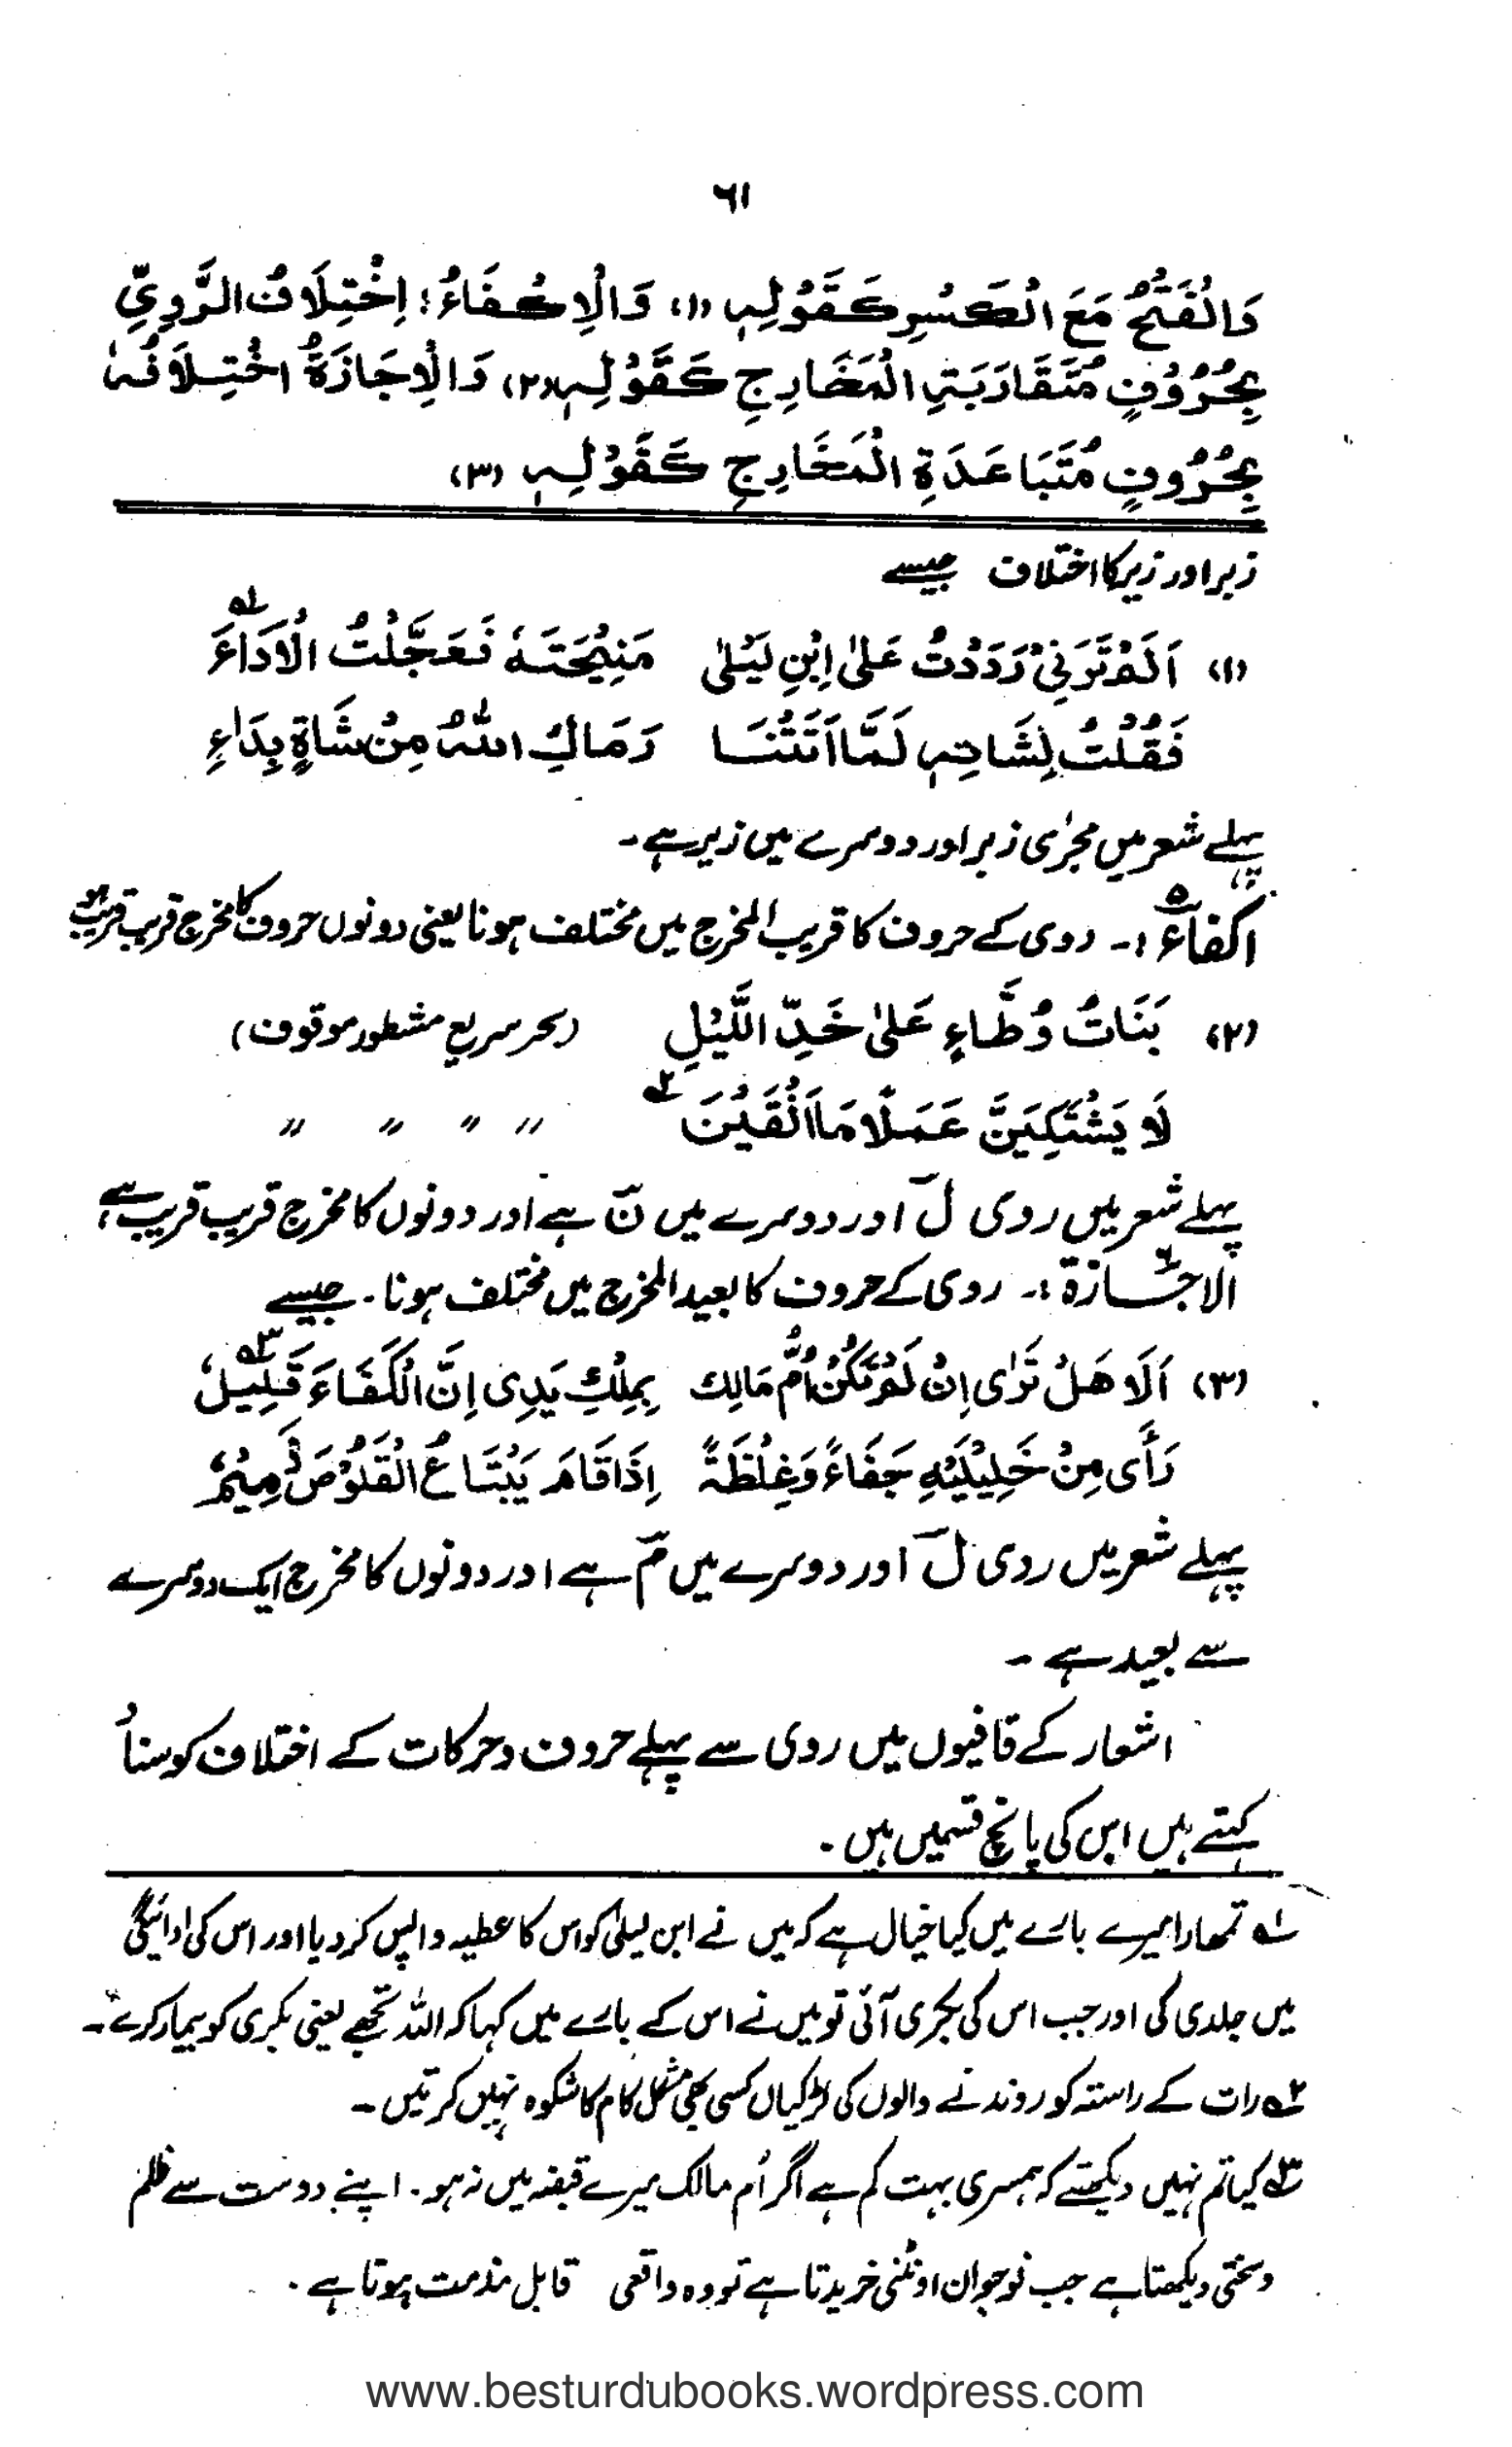 ۶۱
وَالْفَتْحُ مَعَ الْكَسْرِ كَقَوْلِهٖ (۱) وَالْاِكْفَاءُ: اِخْتِلَافُ الرَّوِيِّ
بِحُرُوْفٍ مُتَقَارَبَةِ الْمَخَارِجِ كَقَوْلِهٖ (۲) وَالْاِجَازَةُ اخْتِلَافُهٗ
بِحُرُوْفٍ مُتَبَاعَدَةِ الْمَخَارِجِ كَقَوْلِهٖ (۳)
زبر اور زیر کا اختلاف جیسے
(۱) اَلَمْ تَرَنِيْ رَدَدْتُ عَلىٰ اِبْنِ لَيْلىٰ مَنِيْحَتَهٗ فَعَجَّلْتُ الْاَدَاءَ ۱؎
فَقُلْتُ لِشَاتِهٖ لَمَّا اَتَتْنَا رَمَاكِ اللهُ مِنْ شَاةٍ بِدَاءِ
پہلے شعر میں مجرٰی زبر اور دوسرے میں زیر ہے۔
اکفاء ۵ :۔ روی کے حروف کا قریب المخرج میں مختلف ہونا یعنی دونوں حروف کا مخرج قریب قریب ہو
(۲) بَنَاتُ وُطَّاءٍ عَلىٰ خَدِّ اللَّيْلِ (بحر سریع مشطور موقوف)
لَا يَشْتَكِيَنَّ عَمَلًا مَا اَنْقَيْنَ ۲؎ " " " "
پہلے شعر میں روی لَ اور دوسرے میں نَ ہے اور دونوں کا مخرج قریب قریب ہے،
الاجازۃ ۶ :۔ روی کے حروف کا بعید المخرج میں مختلف ہونا۔ جیسے
(۳) اَلَا هَلْ تَرٰى اِنْ لَمْ تَكُنْ اُمُّ مَالِك بِمِلْكِ يَدِى اِنَّ الْكَفَاءَ قَلِيْلُ ۳؎
رَأَى مِنْ خَلِيْلَيْهِ جَفَاءً وَغِلْظَةً اِذَا قَامَ يَبْتَاعُ الْقَلُوْصَ ذَمِيْمُ
پہلے شعر میں روی لَ اور دوسرے میں مَ ہے اور دونوں کا مخرج ایک دوسرے
سے بعید ہے ۔
اشعار کے قافیوں میں روی سے پہلے حروف و حرکات کے اختلاف کو سناُ
کہتے ہیں اس کی پانچ قسمیں ہیں ۔
۱؎ تمہارا میرے بارے میں کیا خیال ہے کہ میں نے ابن لیلیٰ کو اس کا عطیہ واپس کر دیا اور اس کی ادائیگی
میں جلدی کی اور جب اس کی بکری آئی تو میں نے اس کے بارے میں کہا کہ اللہ تجھے یعنی بکری کو بیمار کرے ۔
۲؎ رات کے راستہ کو روندنے والوں کی لڑکیاں کسی بھی مشکل کام کا شکوہ نہیں کرتیں ۔
۳؎ کیا تم نہیں دیکھتے کہ ہمسری بہت کم ہے اگر اُم مالک میرے قبضہ میں نہ ہو۔ اپنے دوست سے ظلم
و سختی دیکھتا ہے جب نوجوان اونٹنی خریدتا ہے تو وہ واقعی قابل مذمت ہوتا ہے ۔
www.besturdubooks.wordpress.com